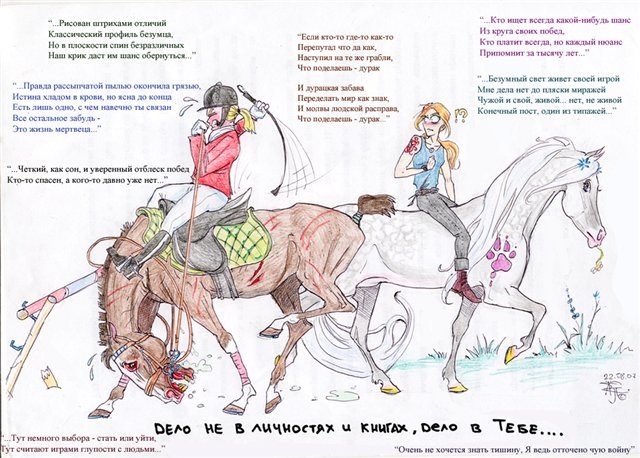 "...Рисован штрихами отличий
Классический профиль безумца,
Но в плоскости спин безразличных
Наш крик даст им шанс обернуться..."
"...Правда рассыпчатой пылью окончила грязью,
Истина хладом в крови, но ясна до конца
Есть лишь одно, с чем навечно ты связан
Все остальное забудь -
Это жизнь мертвеца..."
"...Четкий, как сон, и уверенный отблеск побед
Кто-то спасен, а кого-то давно уже нет..."
"Если кто-то где-то как-то
Перепутал что да как,
Наступил на те же грабли,
Что поделаешь - дурак
И дурацкая забава
Переделать мир как знак,
И молвы людской расправа,
Что поделаешь - дурак..."
"...Кто ищет всегда какой-нибудь шанс
Из круга своих побед,
Кто платит всегда, но каждый нюанс
Припомнит за тысячу лет..."
"...Безумный свет живет своей игрой
Мне дела нет до пляски миражей
Чужой и свой, живой... нет, не живой
Конечный пост, один из типажей..."
!?
22.08.07
ДЕЛО НЕ В ЛИЧНОСТЯХ И КНИГАХ, ДЕЛО В ТЕБЕ....
"...Тут немного выбора - стать или уйти,
Тут считают играми глупости с людьми..."
"Очень не хочется знать тишину, Я ведь отточено чую войну"